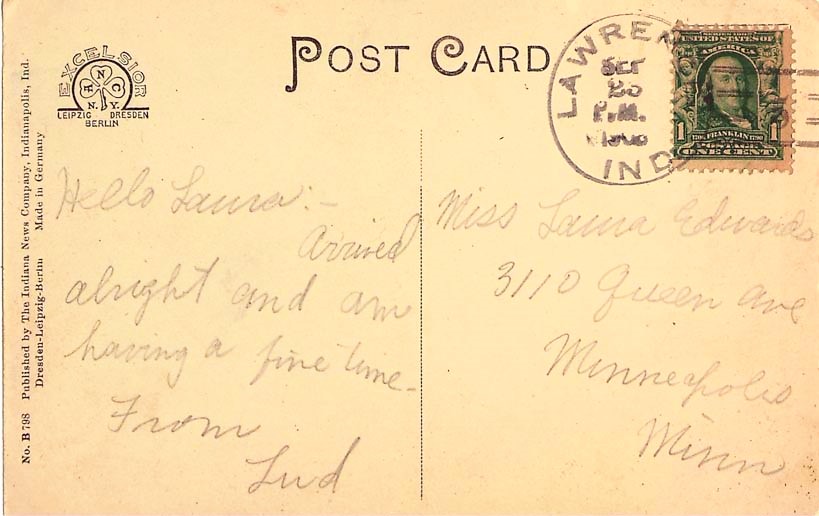 POST CARD
EXCELSIOR
A N C
N.Y.
LEIPZIG DRESDEN
BERLIN
No. B 798 Published by The Indiana News Company, Indianapolis, Ind.
Dresden-Leipzig-Berlin Made in Germany
LAWREN
P.M.
IND
UNITED STATES OF
AMERICA
1 FRANKLIN 1
POSTAGE
ONE CENT
Hello Laura:-
Arrived
alright and am
having a fine time-
From
Lud
Miss Laura Edwards
3110 Queen Ave
Minneapolis
Minn